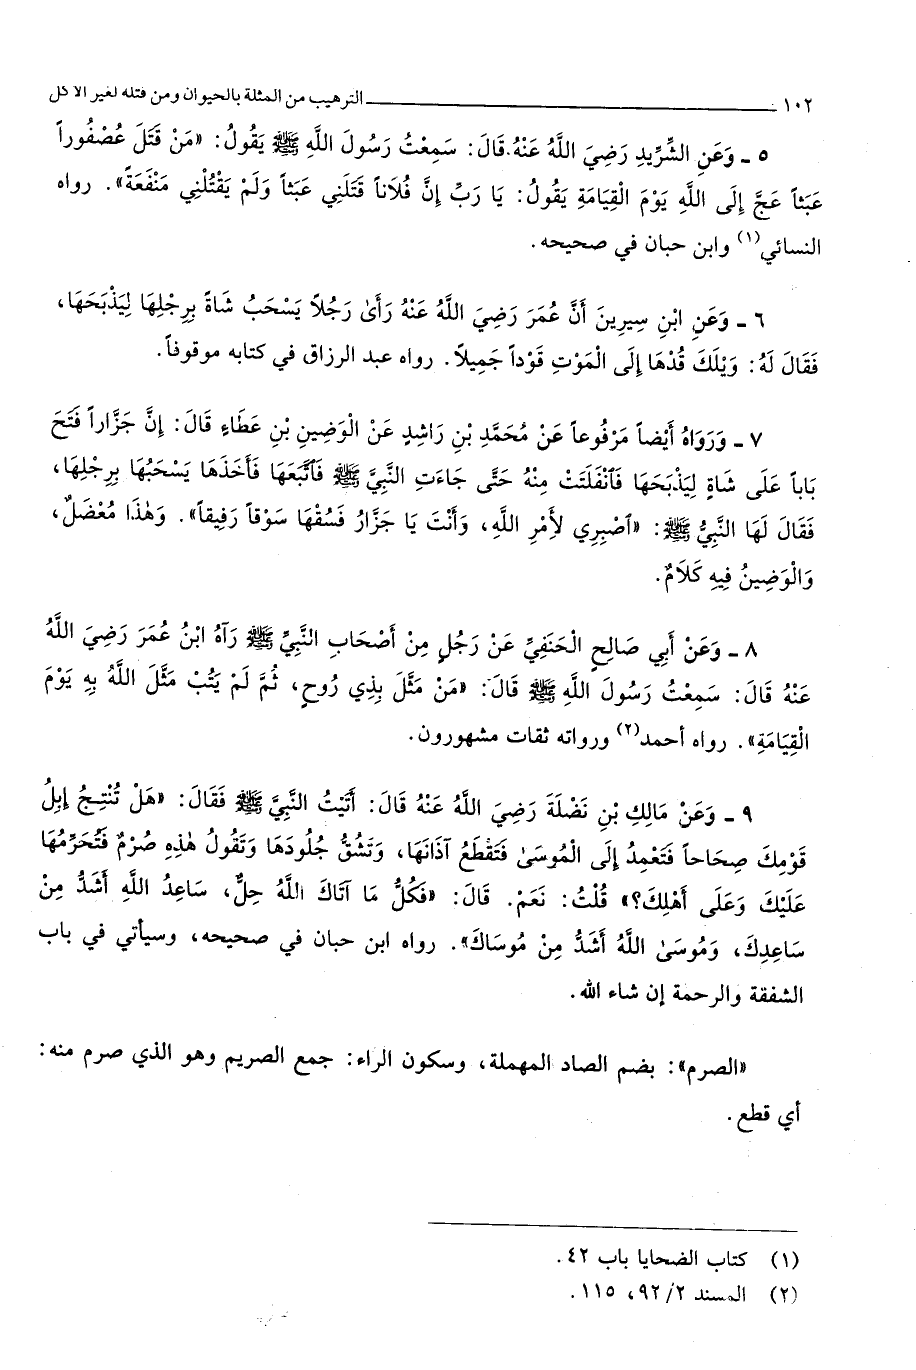 ١٠٢ الترهيب من المثلة بالحيوان ومن قتله لغير الأكل
٥ ـ وَعَنِ الشِّرِّيدِ رَضِيَ اللَّهُ عَنْهُ قَالَ: سَمِعْتُ رَسُولَ اللَّهِ ﷺ يَقُولُ: «مَنْ قَتَلَ عُصْفُوراً
عَبَثاً عَجَّ إِلَى اللَّهِ يَوْمَ الْقِيَامَةِ يَقُولُ: يَا رَبِّ إِنَّ فُلَاناً قَتَلَنِي عَبَثاً وَلَمْ يَقْتُلْنِي مَنْفَعَةً». رواه
النسائي(١) وابن حبان في صحيحه.
٦ ـ وَعَنِ ابْنِ سِيرِينَ أَنَّ عُمَرَ رَضِيَ اللَّهُ عَنْهُ رَأَىٰ رَجُلاً يَسْحَبُ شَاةً بِرِجْلِهَا لِيَذْبَحَهَا،
فَقَالَ لَهُ: وَيْلَكَ قُدْهَا إِلَى الْمَوْتِ قَوْداً جَمِيلاً. رواه عبد الرزاق في كتابه موقوفاً.
٧ ـ وَرَوَاهُ أَيْضاً مَرْفُوعاً عَنْ مُحَمَّدِ بْنِ رَاشِدٍ عَنْ الْوَضِينِ بْنِ عَطَاءٍ قَالَ: إِنَّ جَزَّاراً فَتَحَ
بَاباً عَلَى شَاةٍ لِيَذْبَحَهَا فَٱنْفَلَتَتْ مِنْهُ حَتَّى جَاءَتِ النَّبِيَّ ﷺ فَٱتَّبَعَهَا فَأَخَذَهَا يَسْحَبُهَا بِرِجْلِهَا،
فَقَالَ لَهَا النَّبِيُّ ﷺ: «ٱصْبِرِي لأَمْرِ اللَّهِ، وَأَنْتَ يَا جَزَّارُ فَسُقْهَا سَوْقاً رَفِيقاً». وَهٰذَا مُعْضَلٌ،
وَالْوَضِينُ فِيهِ كَلَامٌ.
٨ ـ وَعَنْ أَبِي صَالِحٍ الْحَنَفِيِّ عَنْ رَجُلٍ مِنْ أَصْحَابِ النَّبِيِّ ﷺ رَآهُ ابْنُ عُمَرَ رَضِيَ اللَّهُ
عَنْهُ قَالَ: سَمِعْتُ رَسُولَ اللَّهِ ﷺ قَالَ: «مَنْ مَثَّلَ بِذِي رُوحٍ، ثُمَّ لَمْ يَتُبْ مَثَّلَ اللَّهُ بِهِ يَوْمَ
الْقِيَامَةِ». رواه أحمد(٢) ورواته ثقات مشهورون.
٩ ـ وَعَنْ مَالِكِ بْنِ نَضْلَةَ رَضِيَ اللَّهُ عَنْهُ قَالَ: أَتَيْتُ النَّبِيَّ ﷺ فَقَالَ: «هَلْ تُنْتِجُ إِبِلُ
قَوْمِكَ صِحَاحاً فَتَعْمِدُ إِلَى الْمُوسَىٰ فَتَقْطَعُ آذَانَهَا، وَتَشُقُّ جُلُودَهَا وَتَقُولُ هٰذِهِ صُرْمٌ فَتُحَرِّمُهَا
عَلَيْكَ وَعَلَى أَهْلِكَ؟» قُلْتُ: نَعَمْ. قَالَ: «فَكُلُّ مَا آتَاكَ اللَّهُ حِلٌّ، سَاعِدُ اللَّهِ أَشَدُّ مِنْ
سَاعِدِكَ، وَمُوسَىٰ اللَّهُ أَشَدُّ مِنْ مُوسَاكَ». رواه ابن حبان في صحيحه، وسيأتي في باب
الشفقة والرحمة إن شاء الله.
«الصرم»: بضم الصاد المهملة، وسكون الراء: جمع الصريم وهو الذي صرم منه:
أي قطع.
(١) كتاب الضحايا باب ٤٢.
(٢) المسند ٩٢/٢، ١١٥.